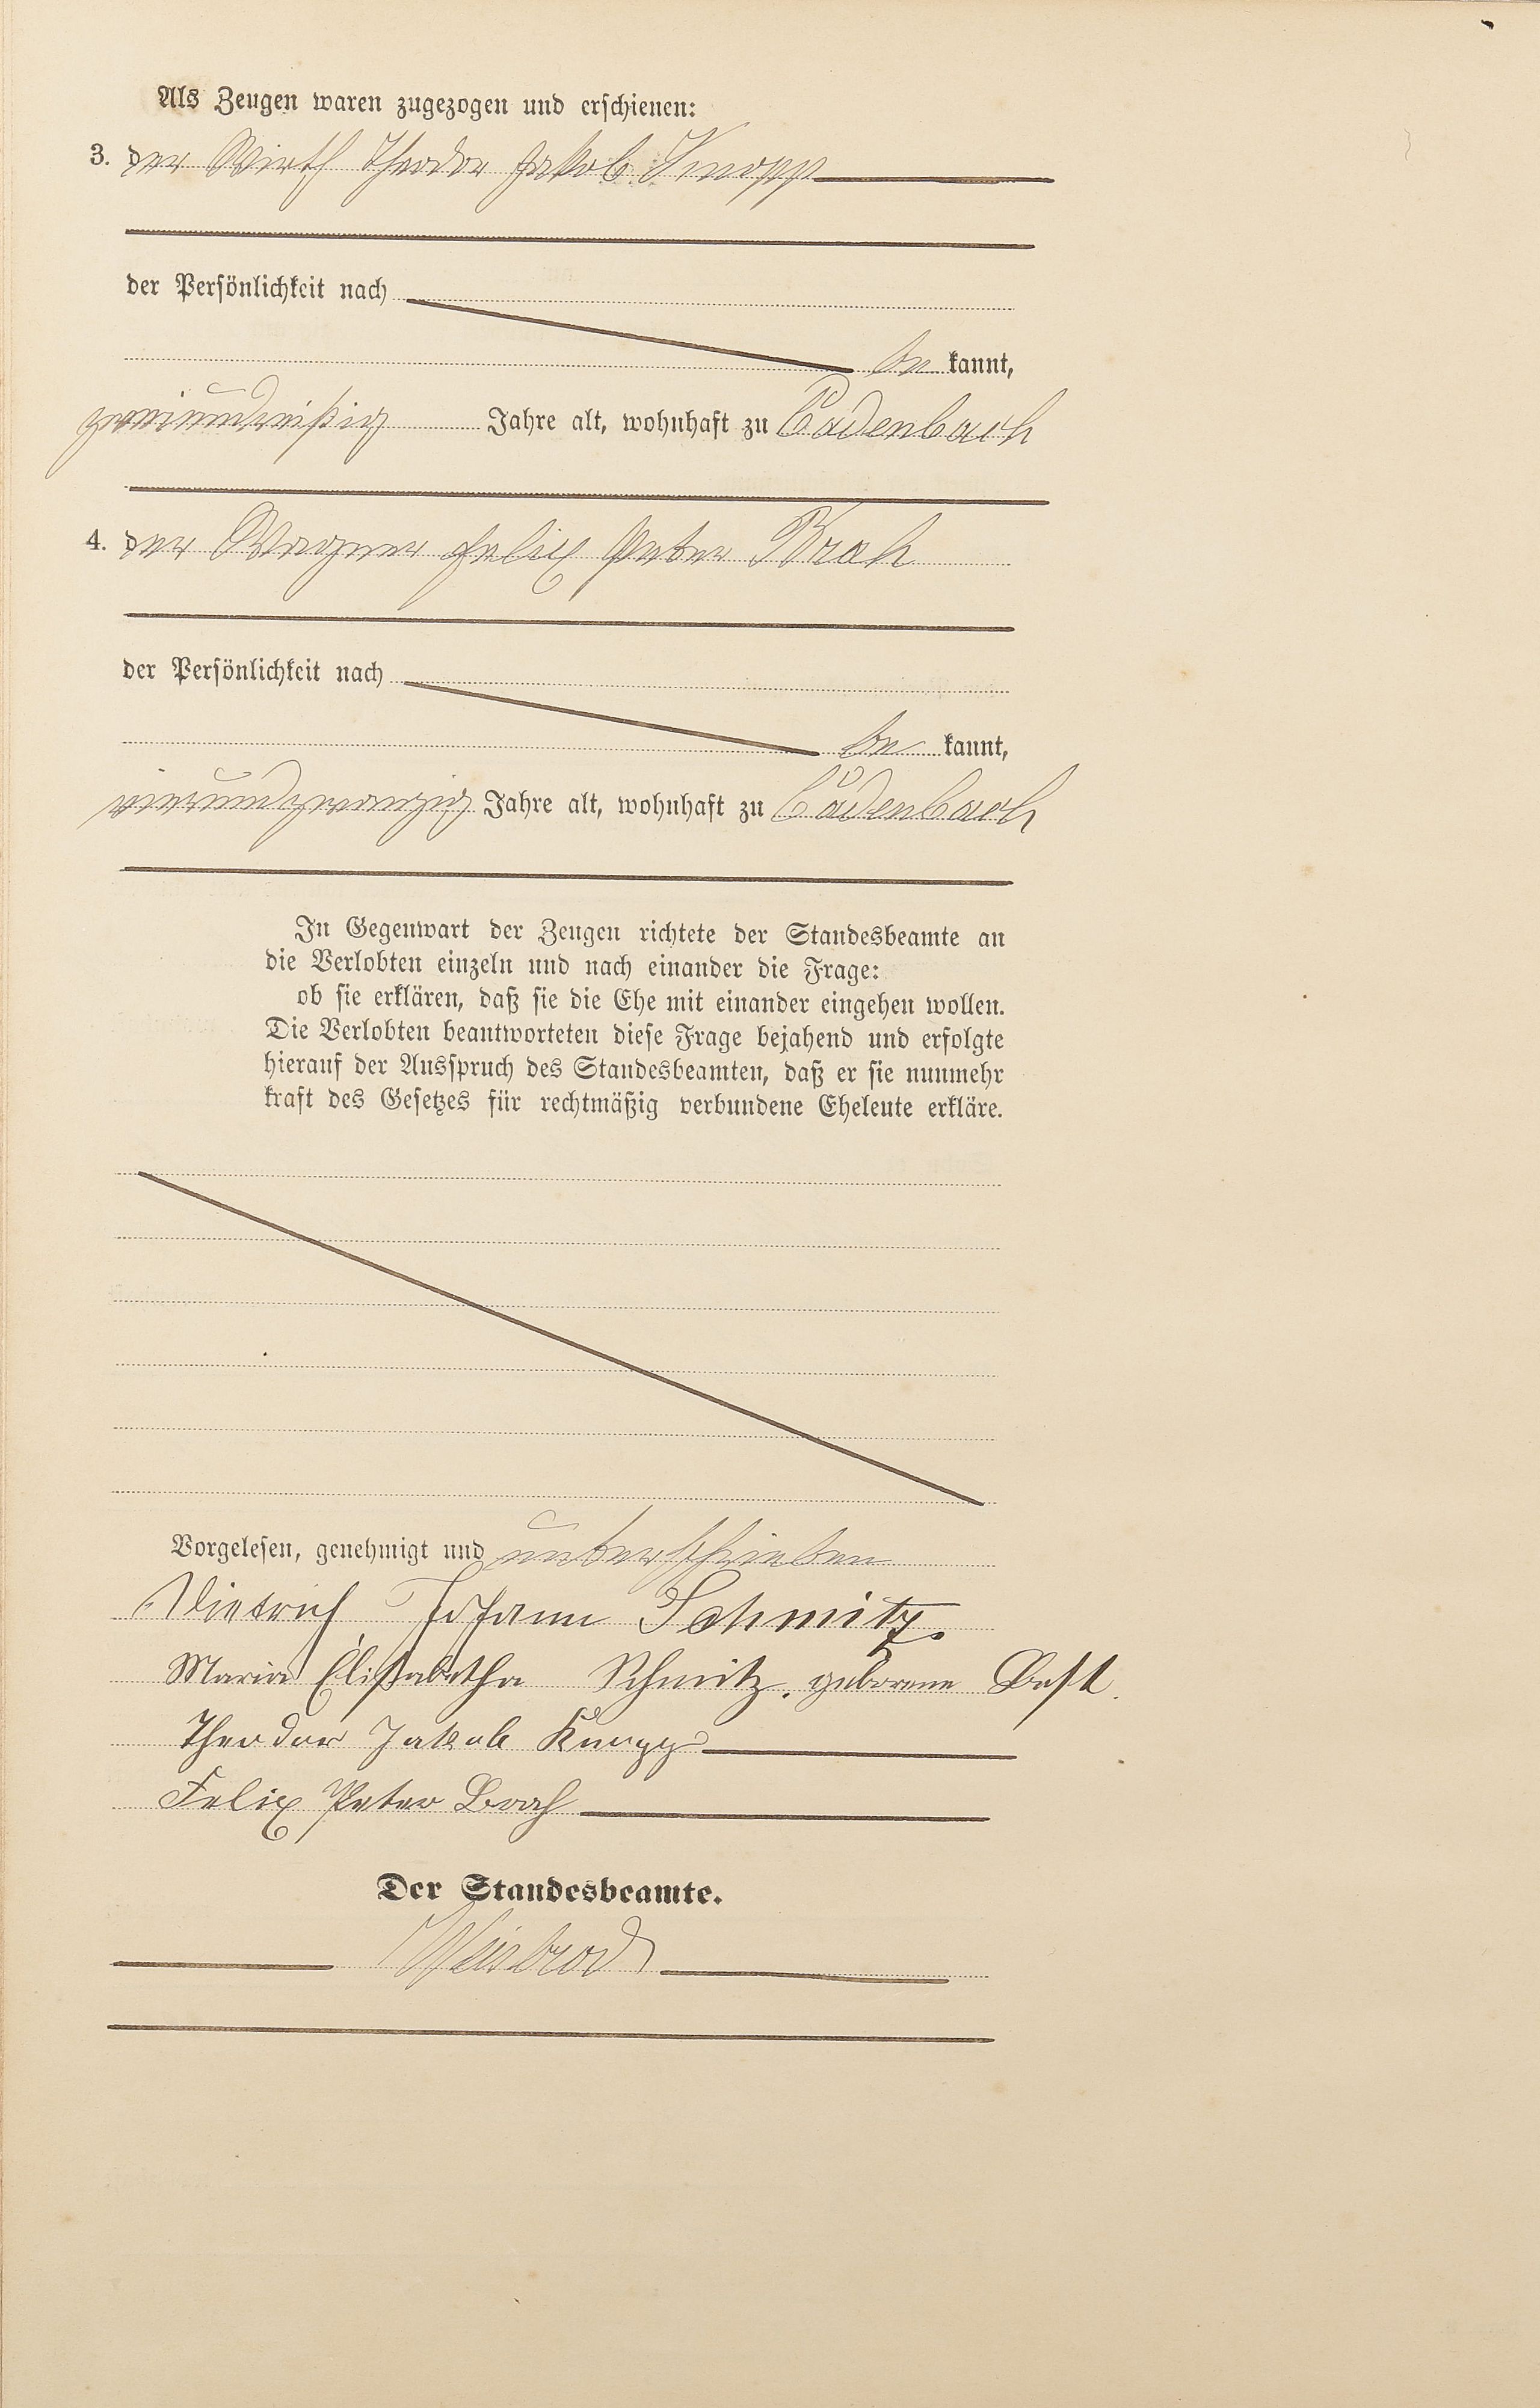 Als Zeugen waren zugezogen und erschienen:
3. der Wirth Theodor Jakob Knopp
der Persönlichkeit nach
be kannt,
zweiunddreißig Jahre alt, wohnhaft zu Cadenbach
4. der Wagner Felix Peter Brah
der Persönlichkeit nach
be kannt,
vierundzwanzig Jahre alt, wohnhaft zu Cadenbach
In Gegenwart der Zeugen richtete der Standesbeamte an
die Verlobten einzeln und nach einander die Frage:
ob sie erklären, daß sie die Ehe mit einander eingehen wollen.
Die Verlobten beantworteten diese Frage bejahend und erfolgte
hierauf der Ausspruch des Standesbeamten, daß er sie nunmehr
kraft des Gesetzes für rechtmäßig verbundene Eheleute erkläre.
Vorgelesen, genehmigt und unterschrieben
Dietrich Johann Schmitz.
Maria Elisabetha Schmitz, geborene
Theodor Jakob Knopp
Felix Peter Brah
Der Standesbeamte.
Weisbrod